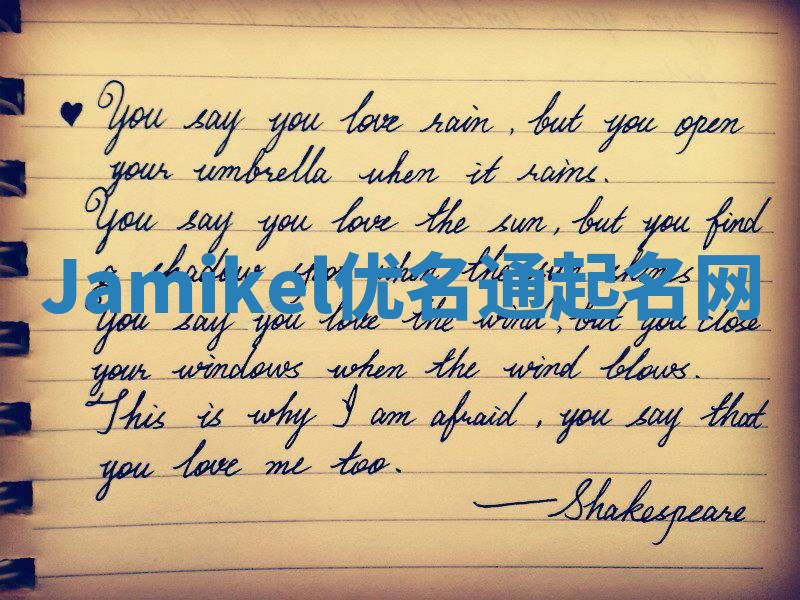 ♥ You say you love rain, but you open
your umbrella when it rains.
You say you love the sun, but you find
a shadow spot when the sun shines
Jamikel优名通起名网
You say you love the wind, but you close
your windows when the wind blows.
This is why I am afraid, you say that
you love me too.
—Shakespeare